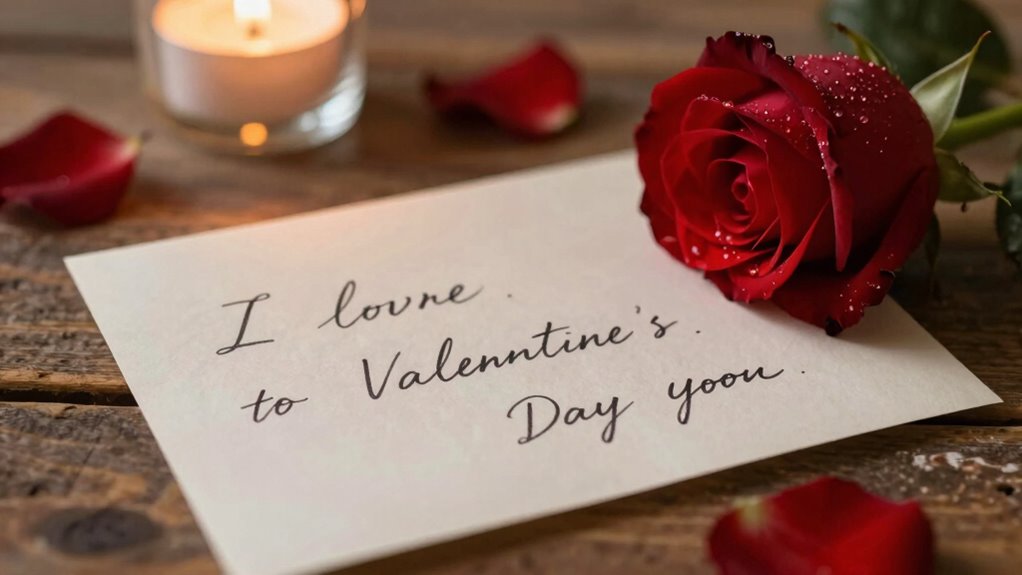 I lovne.
to Valenntine's.
Day yoou.